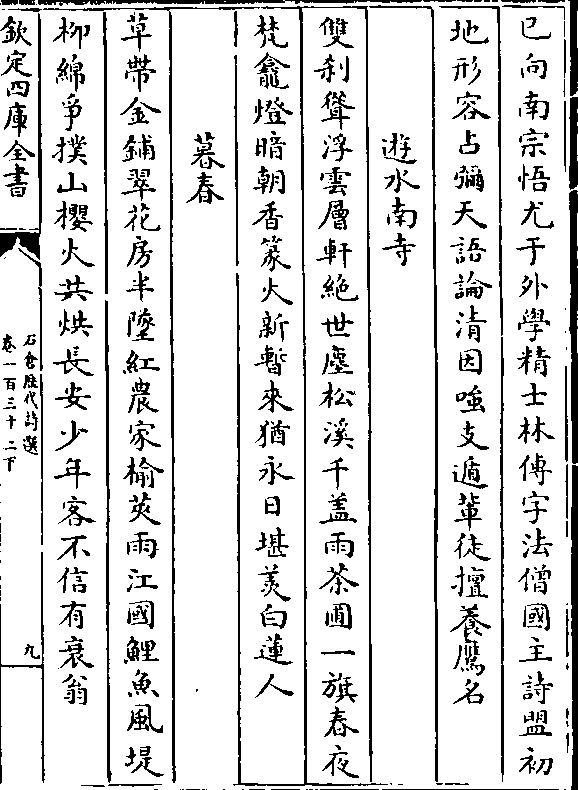 已向南宗悟尤于外學精士林傳字法僧國主詩盟初
地形容占彌天語論清因嗤支遁輩徒擅養鷹名
遊水南寺
雙刹聳浮雲層軒絶世塵松溪千盖雨茶圃一旗春夜
梵龕燈暗朝香篆火新暫來猶永日堪羡白蓮人
暮春
草帶金鋪翠花房半墜紅農家榆莢雨江國鯉魚風堤
柳綿爭撲山櫻火共烘長安少年客不信有衰翁
欽定四庫全書
石倉歴代詩選
卷一百三十二下
九